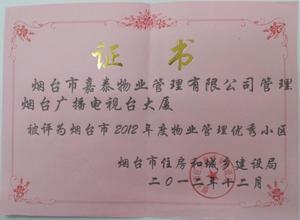 证书
烟台市嘉泰物业管理有限公司管理
烟台广播电视台大厦
被评为烟台市2012年度物业管理优秀小区
烟台市住房和城乡建设局
二〇一二年十二月